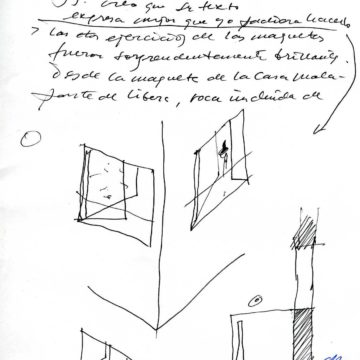 creo que su texto
expresa mejor que yo pudiera hacerlo
> Los dos ejercicios de las maquetas
fueron sorprendentemente brillantes.
Desde la maqueta de la Casa Mala-
parte de Libera, roca incluida de